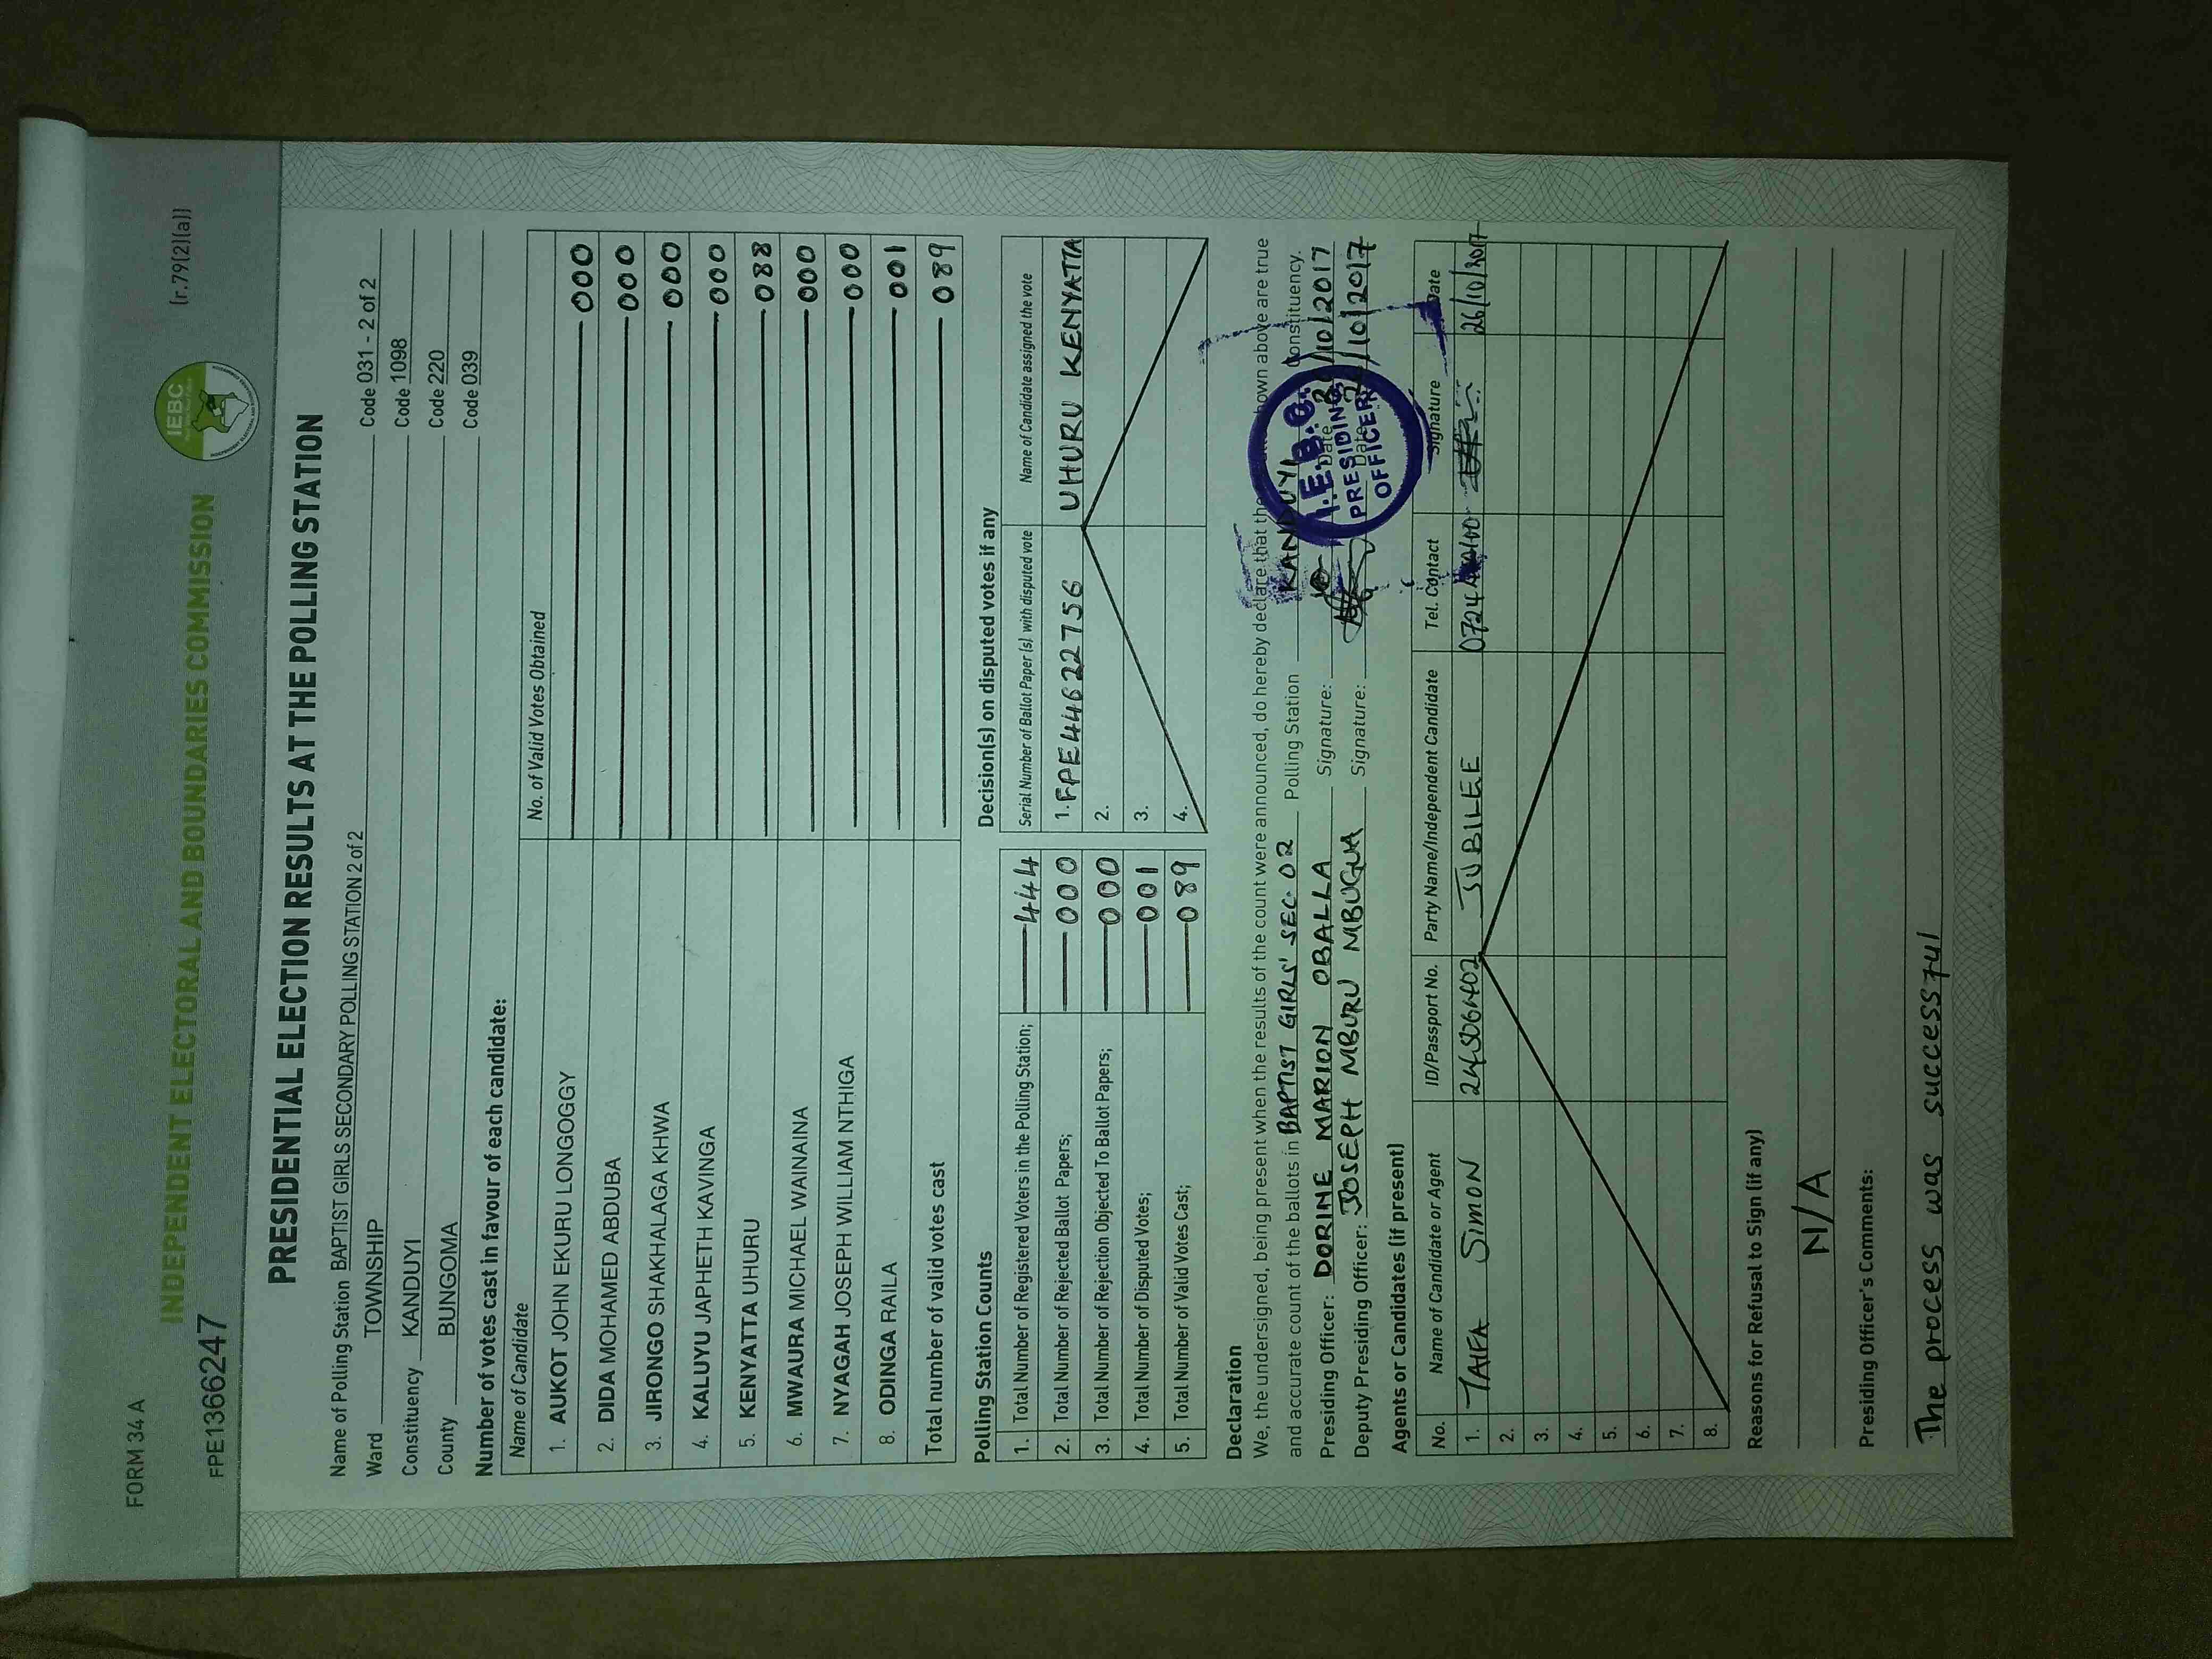 FORM 34 A
(r.79(2)(a))
IEBC
INDEPENDENT ELECTORAL AND BOUNDARIES COMMISSION
FPE1366247
PRESIDENTIAL ELECTION RESULTS AT THE POLLING STATION
Name of Polling Station BAPTIST GIRLS SECONDARY POLLING STATION 2 of 2 Code 031 - 2 of 2
Ward TOWNSHIP Code 1098
Constituency KANDUYI Code 220
County BUNGOMA Code 039
Number of votes cast in favour of each candidate:
Name of Candidate No. of Valid Votes Obtained
1. AUKOT JOHN EKURU LONGOGGY 000
2. DIDA MOHAMED ABDUBA 000
3. JIRONGO SHAKHALAGA KHWA 000
4. KALUYU JAPHETH KAVINGA 000
5. KENYATTA UHURU 088
6. MWAURA MICHAEL WAINAINA 000
7. NYAGAH JOSEPH WILLIAM NTHIGA 000
8. ODINGA RAILA 001
Total number of valid votes cast 089
Polling Station Counts
1. Total Number of Registered Voters in the Polling Station; 444
2. Total Number of Rejected Ballot Papers; 000
3. Total Number of Rejection Objected To Ballot Papers; 000
4. Total Number of Disputed Votes; 001
5. Total Number of Valid Votes Cast; 089
Decision(s) on disputed votes if any
Serial Number of Ballot Paper (s) with disputed vote Name of Candidate assigned the vote
1. FPE44622756 UHURU KENYATTA
2.
3.
4.
Declaration
We, the undersigned, being present when the results of the count were announced, do hereby declare that the shown above are true
and accurate count of the ballots in BAPTIST GIRLS' SEC- 02 Polling Station KANDUYI Constituency.
Presiding Officer: DORINE MARION OBALLA Signature: Date /10/2017
Deputy Presiding Officer: JOSEPH MBURU MBUGUA Signature: Date /10/2017
I.E.B.C.
PRESIDING
OFFICER
Agents or Candidates (if present)
No. Name of Candidate or Agent ID/Passport No. Party Name/Independent Candidate Tel. Contact Signature Date
1. TAIFA SIMON JUBILEE 26/10/2017
2.
3.
4.
5.
6.
7.
8.
Reasons for Refusal to Sign (if any)
N/A
Presiding Officer's Comments:
The process was successful